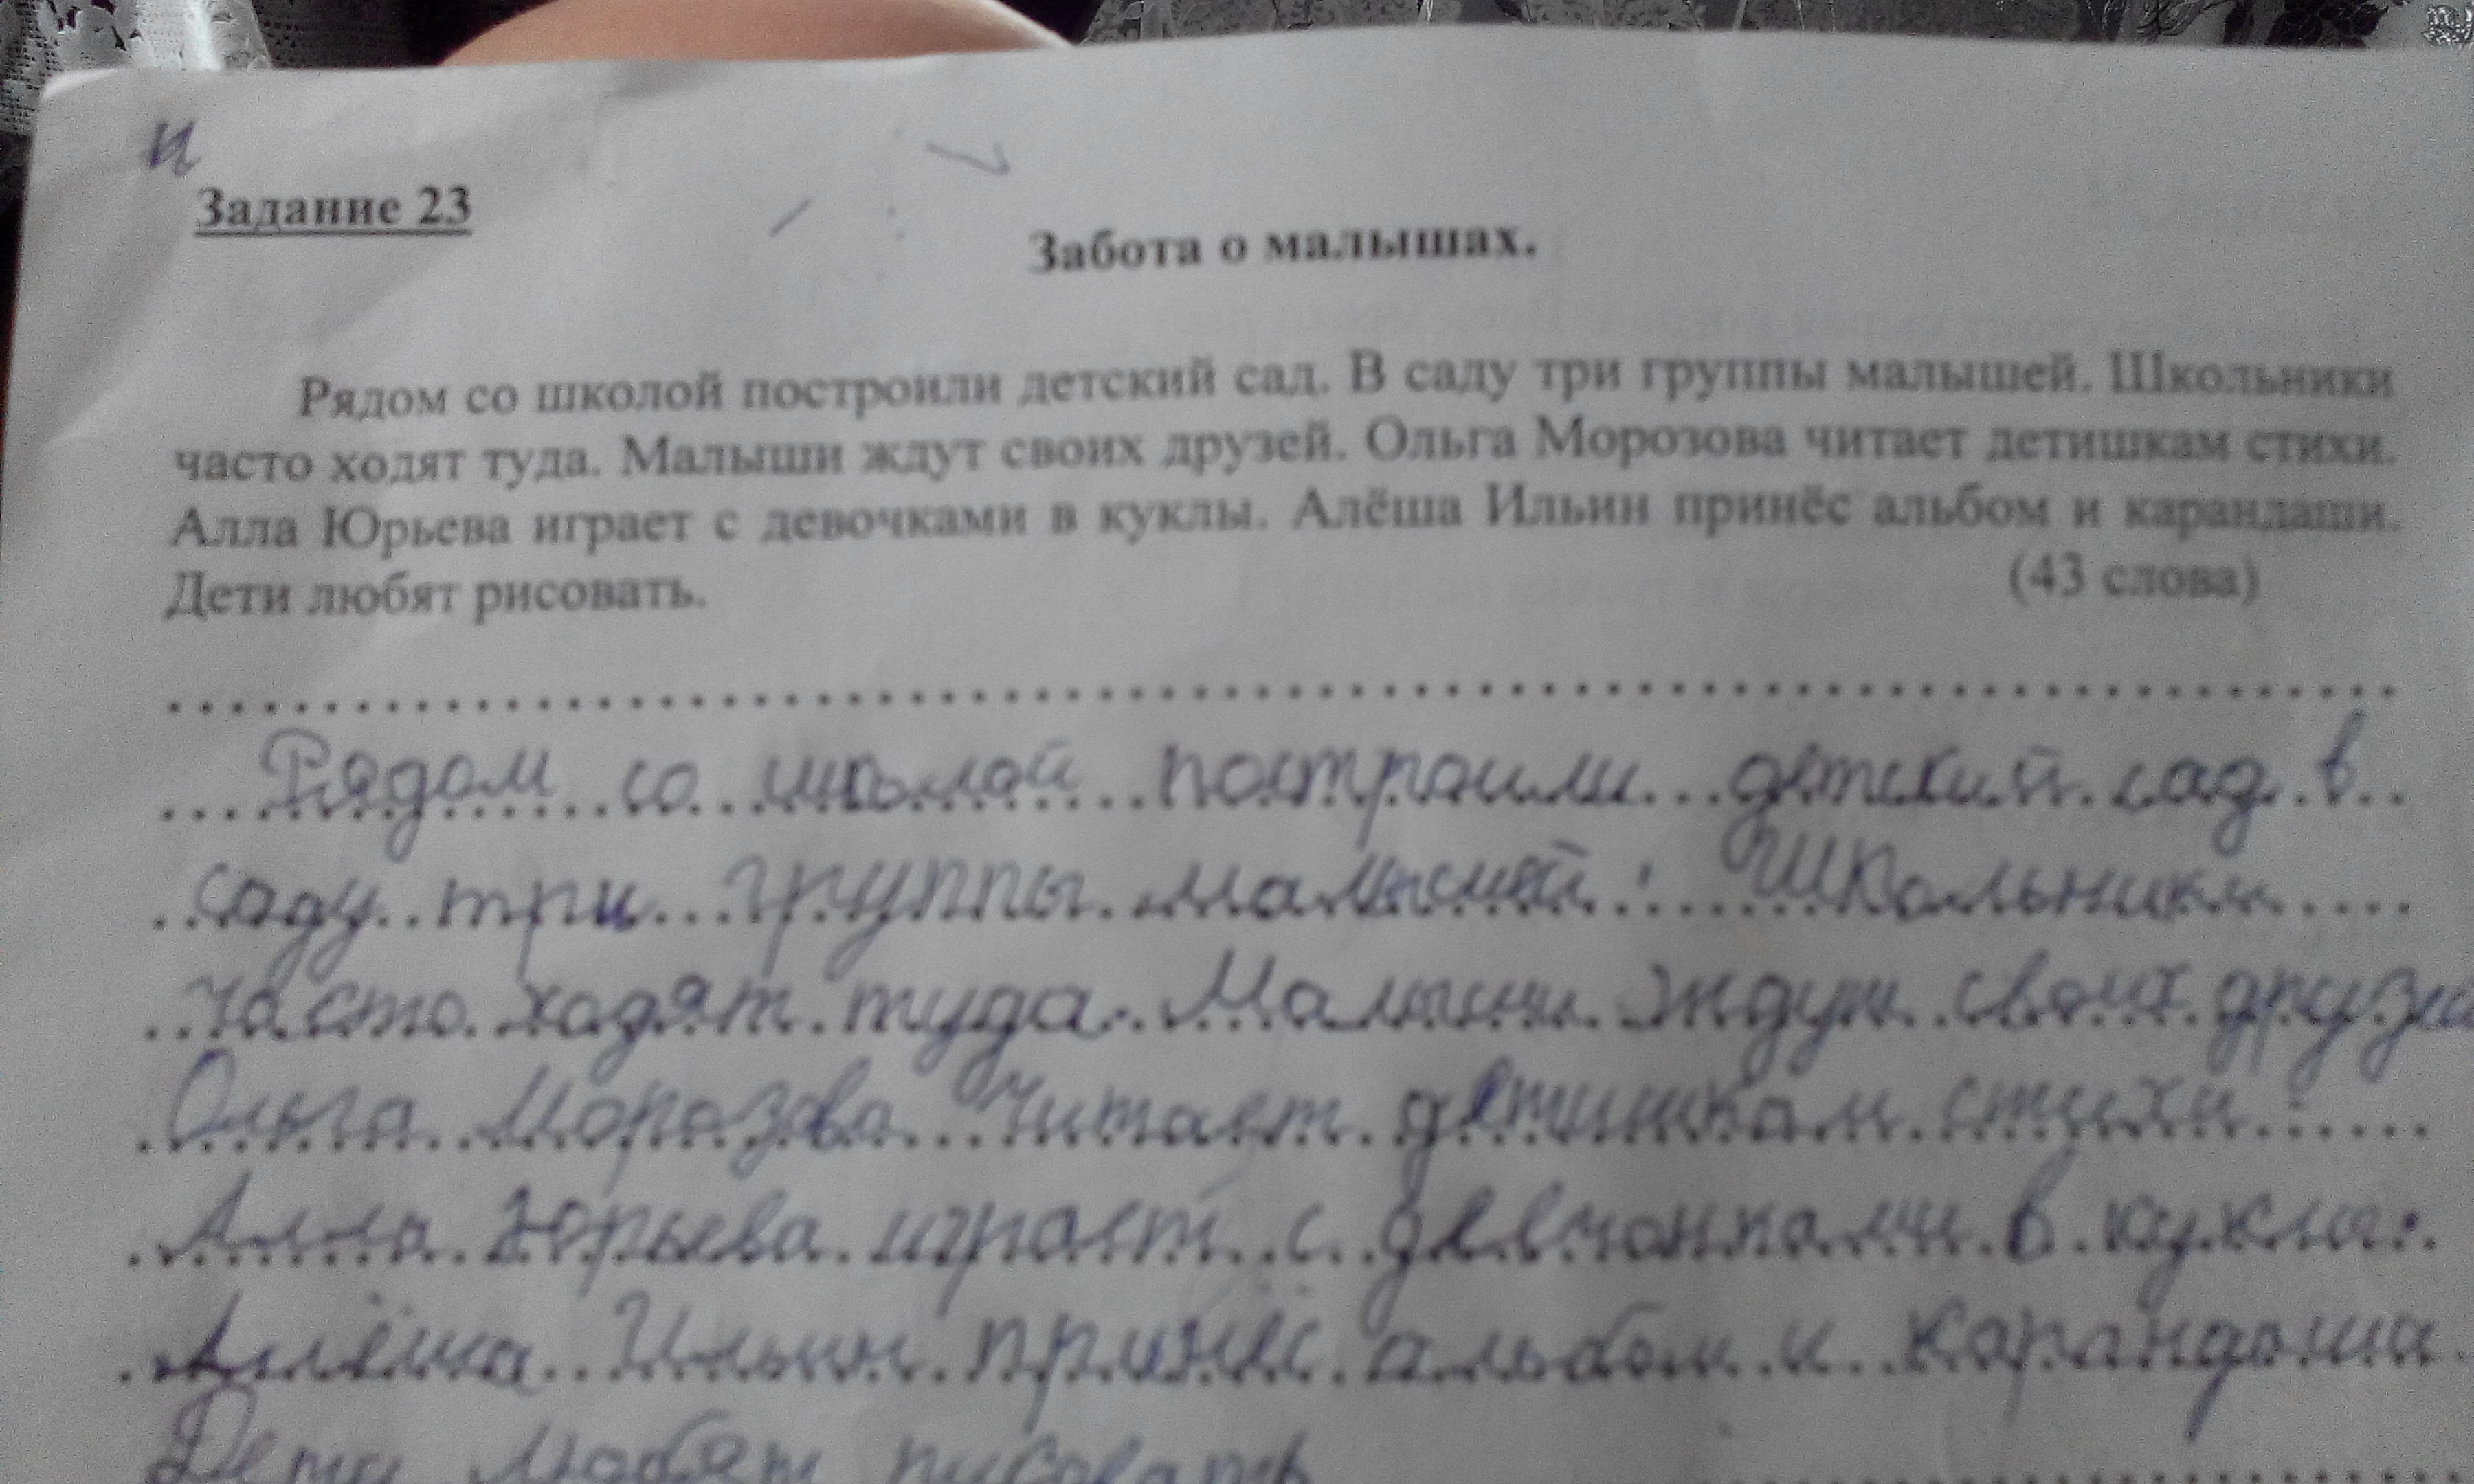 и
Задание 23
Забота о малышах.
Рядом со школой построили детский сад. В саду три группы малышей. Школьники
часто ходят туда. Малыши ждут своих друзей. Ольга Морозова читает детишкам стихи.
Алла Юрьева играет с девочками в куклы. Алёша Ильин принёс альбом и карандаши.
Дети любят рисовать.
(43 слова)
Рядом со школой построили детский сад. в
саду три группы малышей. Школьники
часто ходят туда. Малыши ждут своих
Ольга Морозова читает детишкам стихи.
Алла Юрьева играет с девчонками в куклы.
Алёша Ильин принёс альбом и карандаши
Дети любят рисовать